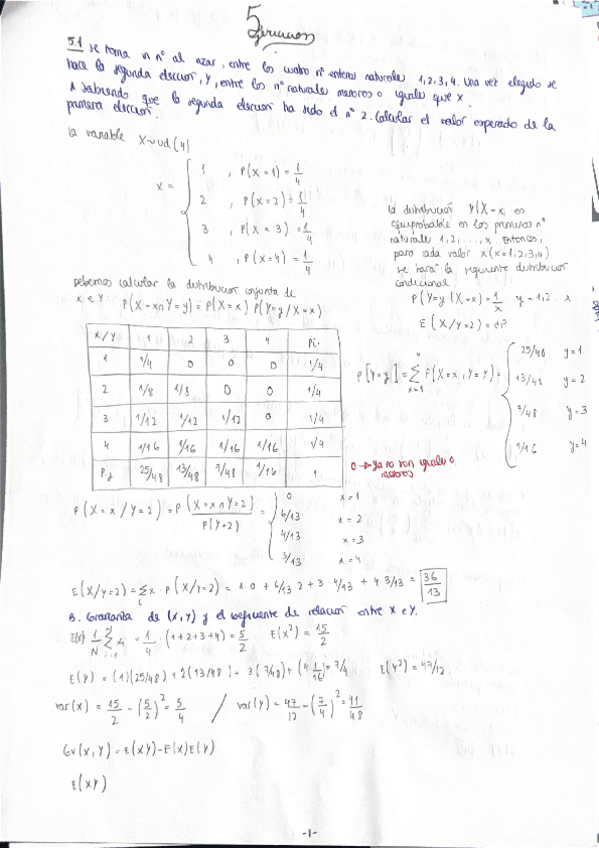 5
Ejercicios
5.1 se toma un nº al azar, entre los cuatro nº enteros naturales 1,2,3,4. Una vez elegido se
hace la segunda elección, Y, entre los nº naturales menores o iguales que x.
A sabiendo que la segunda elección ha sido el nº 2. Calcular el valor esperado de la
primera elección.
la variable X~ud(4)
x =
1 , P(X=1)=1/4
2 , P(X=2)=1/4
3 , P(X=3)=1/4
4 , P(X=4)=1/4
la distribución Y|X=x, es
equiprobable en los primeros nº
naturales 1,2,...,x. Entonces,
para cada valor x(x=1,2,3,4)
se tendrá la siguiente distribución
condicional.
P(Y=y|X=x)=1/x y=1,2..x
E(X/Y=2)=
Debemos calcular la distribución conjunta de
x e Y: P(X=x∩Y=y)=P(X=x) P(Y=y/X=x)
x/Y 1 2 3 4 Pi.
1 1/4 0 0 0 1/4
2 1/8 1/8 0 0 1/4
3 1/12 1/12 1/12 0 1/4
4 1/16 1/16 1/16 1/16 1/4
P.j 25/48 13/48 7/48 1/16 1
P[Y=y]=∑ P(X=x, Y=y)=
25/48 y=1
13/48 y=2
7/48 y=3
1/16 y=4
0 → ya no son iguales o
menores
P(X=x/Y=2)=P(X=x∩Y=2)/P(Y=2)=
0 x=1
6/13 x=2
4/13 x=3
3/13 x=4
E(X/Y=2)=∑x·P(X/Y=2)=1·0+6/13·2+3·4/13+4·3/13=36/13
B. Covarianza de (X,Y) y el coeficiente de relación entre X e Y.
E(x) 1/N ∑ xi = 1/4·(1+2+3+4)=5/2 E(x²)=15/2
E(Y)=(1)(25/48)+2(13/48)=3(7/48)+(4 1/16)=7/4 E(Y²)=47/12.
var(x)=15/2-(5/2)²=5/4 / var(y)=47/12-(7/4)²=41/48
Cov(x,Y)=E(XY)-E(x)E(Y)
E(XY)
-1-